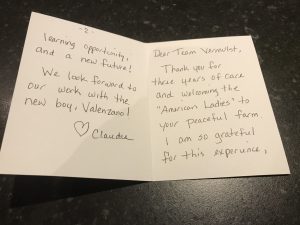 Dear Team Vernulst,
Thank you for
three years of care
and welcoming the
"American Ladies" to
your peaceful farm
I am so grateful
for this experience,
- 2 -
learning opportunity,
and a new future!
We look forward to
our work with the
new boy, Valenzano!
♡ Claudia